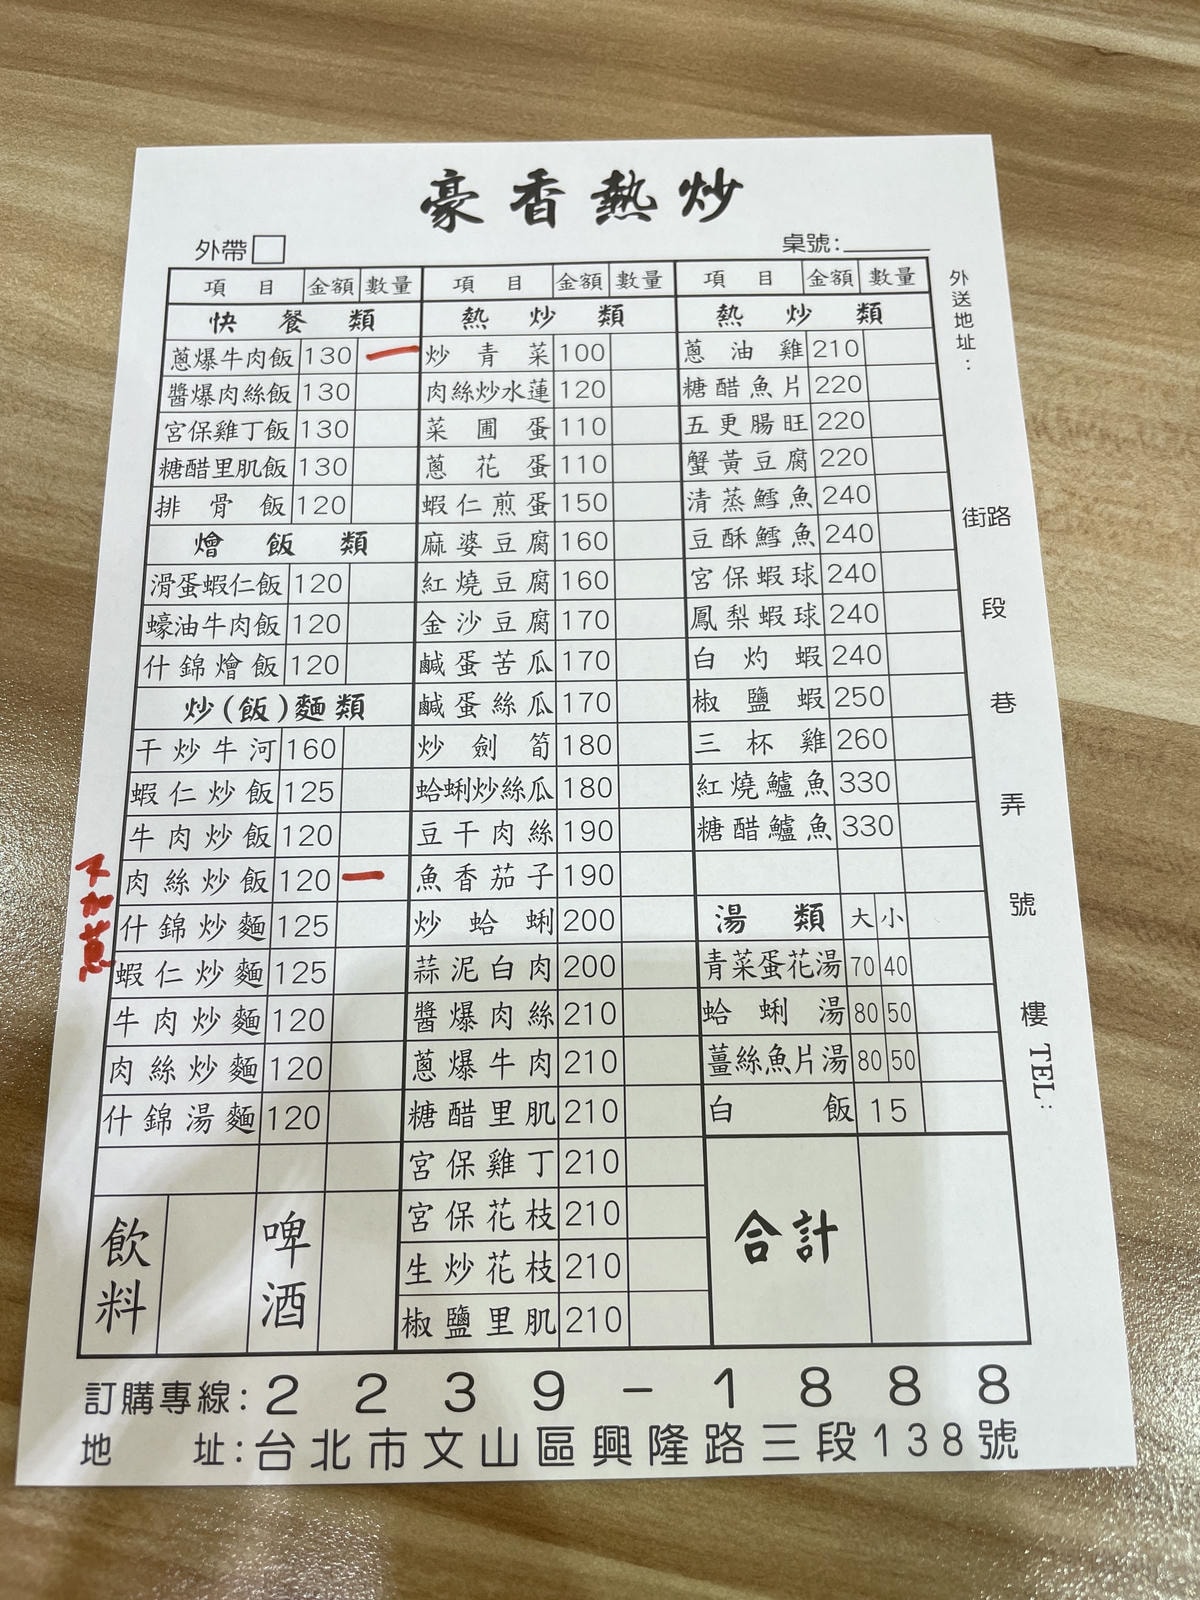 豪香熱炒
外帶 桌號:
項目 金額 數量 項目 金額 數量 項目 金額 數量
快餐類 熱炒類 熱炒類
蔥爆牛肉飯 130 一 炒青菜 100 蔥油雞 210
醬爆肉絲飯 130 肉絲炒水蓮 120 糖醋魚片 220
宮保雞丁飯 130 菜圃蛋 110 五更腸旺 220
糖醋里肌飯 130 蔥花蛋 110 蟹黃豆腐 220
排骨飯 120 蝦仁煎蛋 150 清蒸鱈魚 240
燴飯類 麻婆豆腐 160 豆酥鱈魚 240
滑蛋蝦仁飯 120 紅燒豆腐 160 宮保蝦球 240
蠔油牛肉飯 120 金沙豆腐 170 鳳梨蝦球 240
什錦燴飯 120 鹹蛋苦瓜 170 白灼蝦 240
炒(飯)麵類 鹹蛋絲瓜 170 椒鹽蝦 250
干炒牛河 160 炒劍筍 180 三杯雞 260
蝦仁炒飯 125 蛤蜊炒絲瓜 180 紅燒鱸魚 330
牛肉炒飯 120 豆干肉絲 190 糖醋鱸魚 330
肉絲炒飯 120 一 魚香茄子 190
什錦炒麵 125 炒蛤蜊 200 湯類 大 小
蝦仁炒麵 125 蒜泥白肉 200 青菜蛋花湯 70 40
牛肉炒麵 120 醬爆肉絲 210 蛤蜊湯 80 50
肉絲炒麵 120 蔥爆牛肉 210 薑絲魚片湯 80 50
什錦湯麵 120 糖醋里肌 210 白飯 15
宮保雞丁 210
飲料 啤酒 宮保花枝 210 合計
生炒花枝 210
椒鹽里肌 210
外送地址: 街路 段 巷 弄 號 樓 TEL:
訂購專線:2239-1888
地址:台北市文山區興隆路三段138號